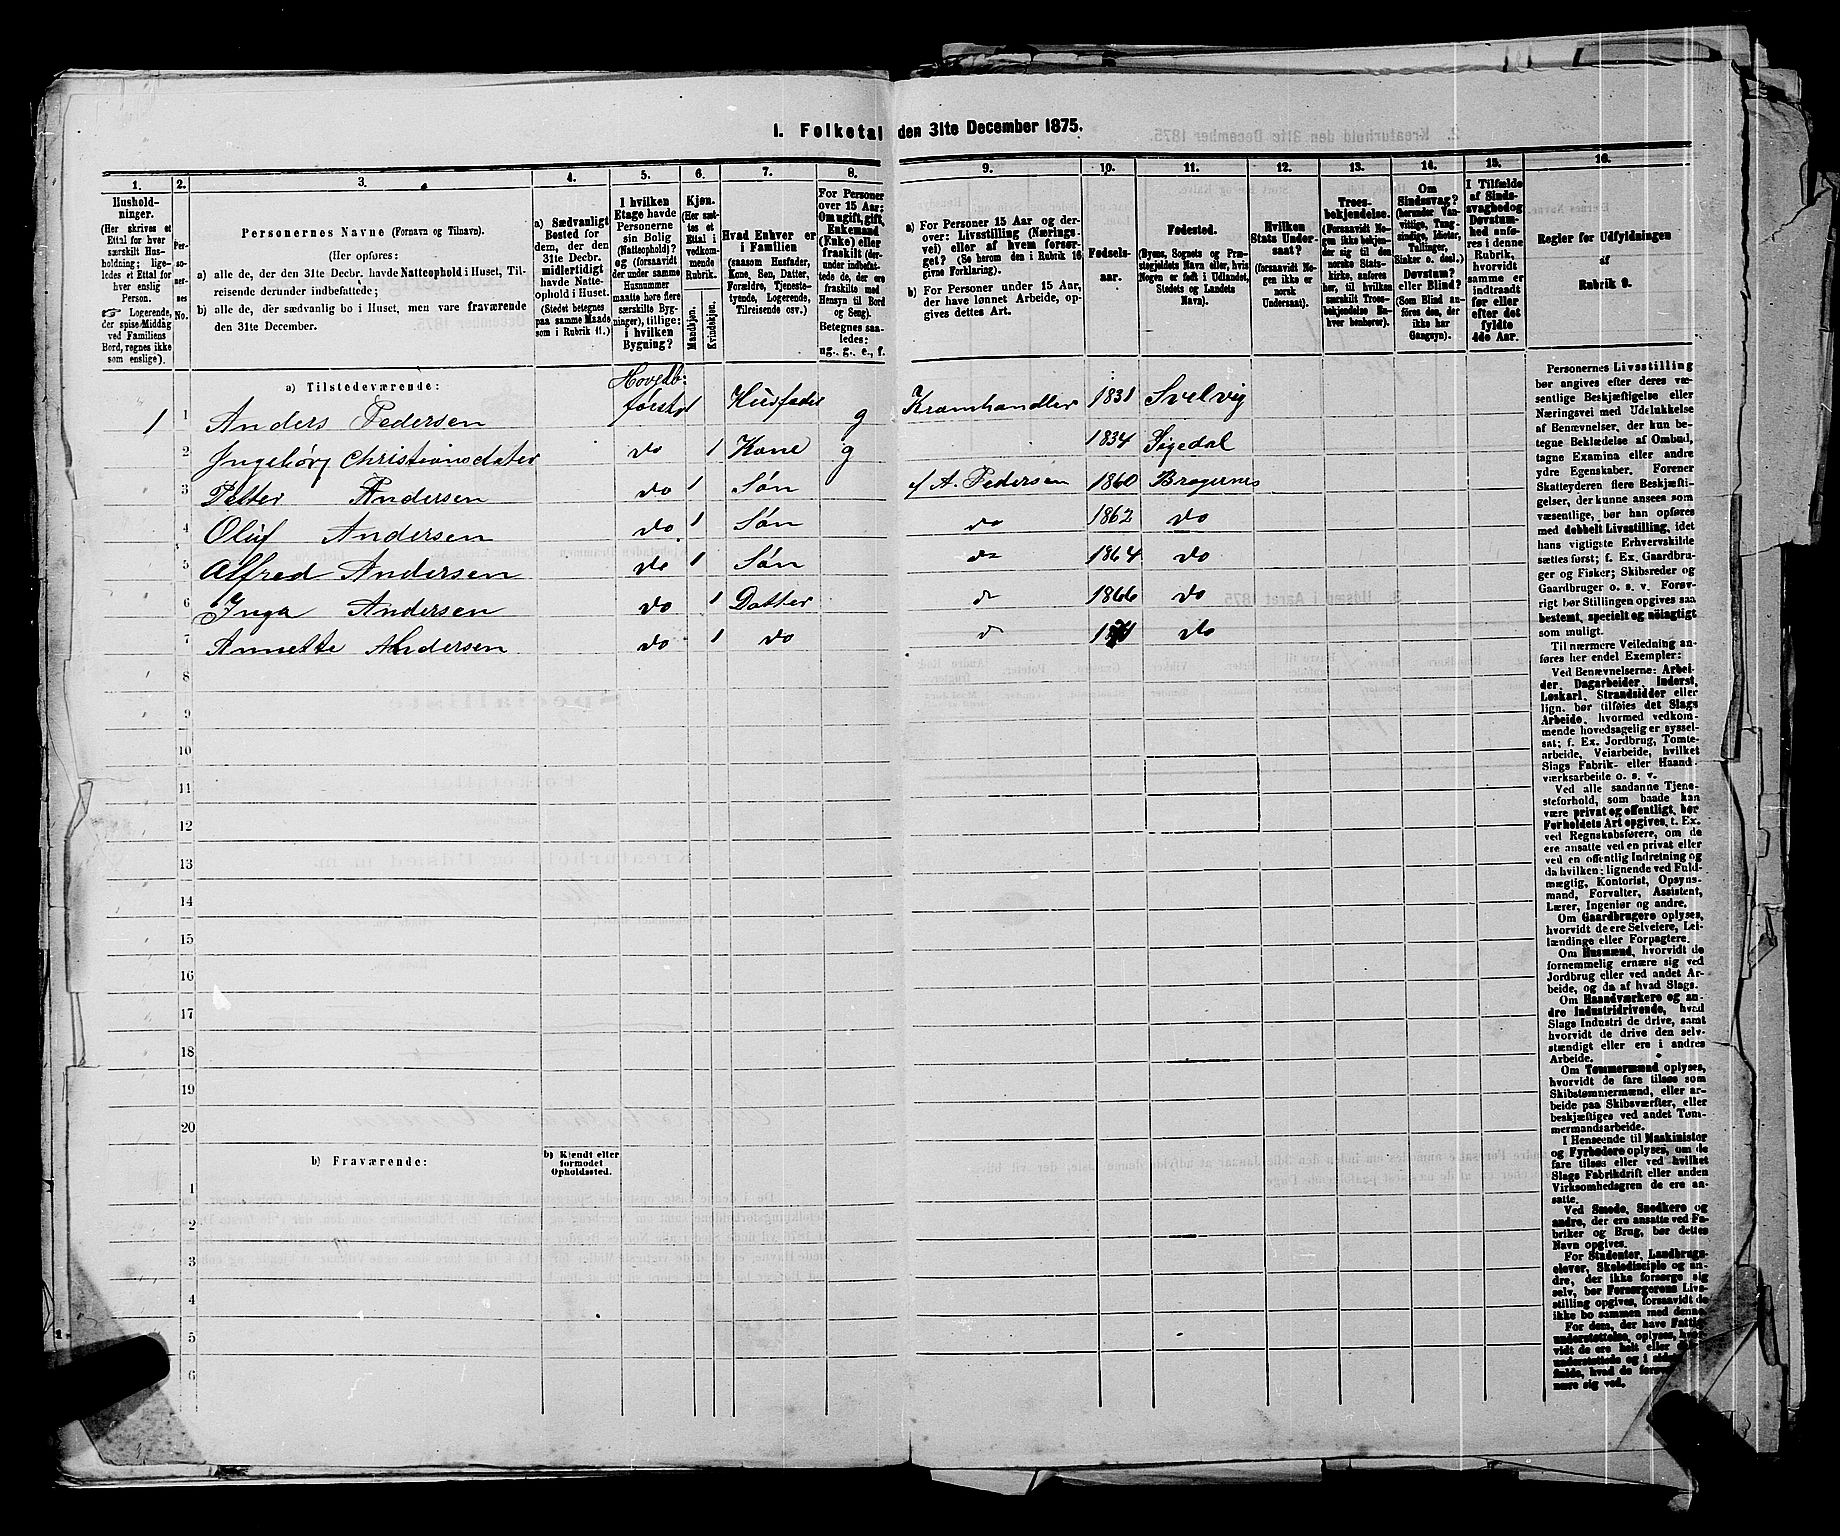 1. Folketal den 31te December 1875.
1. 2. 3. 4. 5. 6. 7. 8. 9. 10. 11. 12. 13. 14. 15. 16.
Hushold-
ninger.
(Her skrives et
Ettal for hver
særskilt Hus-
holdning; lige-
ledes et Ettal for
hver enslig
Person.
☞ Logerende,
der spise Middag
ved Familiens
Bord, regnes ikke
som enslige).
Per-
so-
ner-
nes
No.
Personernes Navne (Fornavn og Tilnavn).
(Her opføres:
a) alle de, der den 31te Decbr. havde Natteophold i Huset, Til-
reisende derunder indbefattede;
b) alle de, der sædvanlig bo i Huset, men vare fraværende
den 31te December.
a) Sædvanligt
Bosted for
dem, der den
31te Decbr.
midlertidigt
havde Natte-
ophold i Huset.
(Stedet betegnes
paa samme Maade
som i Rubrik 11.)
I hvilken
Etage havde
Personerne
sin Bolig
(Natteophold)?
og (forsaavidt
der under samme
Husnummer
maatte høre flere
særskilte Byg-
ninger), tillige:
i hvilken
Bygning?
Kjøn.
(Her sæt-
tes et
Ettal i
vedkom-
mende
Rubrik.
Mandkjøn.
Kvindekjøn.
Hvad Enhver er
i Familien
(saasom Husfader,
Kone, Søn, Datter,
Forældre, Tjeneste-
tyende, Logerende,
Tilreisende osv.)
For Personer
over 15 Aar:
Om ugift, gift,
Enkemand
(Enke) eller
fraskilt (der-
under indbefat-
tede de, der ere
fraskilte med
Hensyn til Bord
og Seng).
Betegnes saa-
ledes:
ug., g., e., f.
a) For Personer 15 Aar og der-
over: Livsstilling (Nærings-
vei) eller af hvem forsør-
get? (Se herom den i Rubrik 16
givne Forklaring).
b) For Personer under 15 Aar,
der have lønnet Arbeide, op-
gives dettes Art.
Fødsels-
aar.
Fødested.
(Byens, Sognets og Præ-
stegjeldets Navn eller, hvis
Nogen er født i Udlandet,
Stedets og Landets
Navn).
Hvilken
Stats Under-
saat?
(forsaavidt No-
gen ikke er
norsk
Undersaat).
Troes-
bekjendelse.
(Forsaavidt No-
gen ikke bekjen-
der sig til den
norske Stats-
kirke, anføres
her, til hvilken
særskilt Troes-
bekjendelse En-
hver henhører).
Om
Sindssvag?
(herunder Van-
vittige, Tung-
sindige, Idioter,
Tullinger,
Sinker o. desl.)
Døvstum?
eller Blind?
(Som Blind an-
føres den, der
ikke har
Gangsyn).
I Tilfælde
af Sinds-
svaghed og
Døvstum-
hed anfø-
res i denne
Rubrik,
hvorvidt
samme er
indtraadt
før eller
efter det
fyldte
4de Aar.
Regler for Udfyldningen
af
Rubrik 9.
a) Tilstedeværende:
1 1 Anders Pedersen Hovedb: første 1 Husfader g Kramhandler 1831 Svelvig
2 Ingebörg Christiansdater do 1 Kone g 1834 Sigedal
3 Petter Andersen do 1 Søn f A. Pedersen 1860 Bragernes
4 Oluf Andersen do 1 Søn do 1862 do
5 Alfred Andersen do 1 Søn do 1864 do
6 Inga Andersen do 1 Datter do 1866 do
7 Annette Andersen do 1 do do 1871 do
8
9
10
11
12
13
14
15
16
17
18
19
20
b) Fraværende:
b) Kjendt eller
formodet
Opholdssted.
1
2
3
4
5
6
Personernes Livsstilling
bør angives efter deres væ-
sentlige Beskjæftigelse eller
Næringsvei med Udelukkelse
af Benævnelser, der kun be-
tegne Beklædelse af Ombud,
tagne Examina eller andre
ydre Egenskaber. Forener
Skatteyderen flere Beskjæfti-
gelser, der kunne ansees som
væsentlige, bør han opføres
med dobbelt Livsstilling, idet
hans vigtigste Erhvervskilde
sættes først; f. Ex. Gaardbru-
ger og Fisker; Skibsreder og
Gaardbruger o. s. v. Forøv-
rigt bør Stillingen opgives saa
bestemt, specielt og nøiagtigt
som muligt.
Til nærmere Veiledning an-
føres her endel Exempler:
Ved Benævnelserne: Arbei-
der, Dagarbeider, Inderst,
Løskarl, Strandsidder eller
lign. bør tilføies det Slags
Arbeide, hvormed vedkom-
mende hovedsagelig er syssel-
sat; f. Ex. Jordbrug, Tomte-
arbeide, Veiarbeide, hvilket
Slags Fabrik- eller Haand-
værksarbeide o. s. v.
Ved alle saadanne Tjene-
steforhold, som baade kan
være privat og offentligt, bør
Forholdets Art opgives, f. Ex.
ved Regnskabsførere, om de
ere ansatte ved en privat eller
ved en offentlig Indretning og
da hvilken; lignende ved Fuld-
mægtig, Kontorist, Opsyns-
mand, Forvalter, Assistent,
Lærer, Ingeniør og andre.
Om Gaardbrugere oplyses,
hvorvidt de ere Selveiere, Lei-
lændinge eller Forpagtere.
Om Husmænd, hvorvidt de
fornemmelig ernære sig ved
Jordbrug eller ved andet Ar-
beide, og da af hvad Slags.
Om Haandværkere og an-
dre Industridrivende, hvad
Slags Industri de drive, samt
hvorvidt de drive den selv-
stændigt eller ere i andres
Arbeide.
Om Tømmermænd oplyses,
hvorvidt de fare tilsøs som
Skibstømmermænd, eller ar-
beide paa Skibsværfter, eller
beskjæftiges ved andet Tøm-
mermandsarbeide.
I Henseende til Maskinister
og Fyrbødere oplyses, om de
fare tilsøs eller ved hvilket
Slags Fabrikdrift eller anden
Virksomhedsgren de ere an-
satte.
Ved Smede, Snedkere og
andre, der ere ansatte ved Fa-
briker og Brug, bør dettes
Navn opgives.
For Studenter, Landbrugs-
elever, Skoledisciple og an-
dre, der ikke forsørge sig
selv, bør Forsørgerens Livs-
stilling opgives, forsaavidt de
ikke bo sammen med denne.
For dem, der have Fattig-
understøttelse, oplyses, hvor-
vidt de ere helt eller
understøttede og i